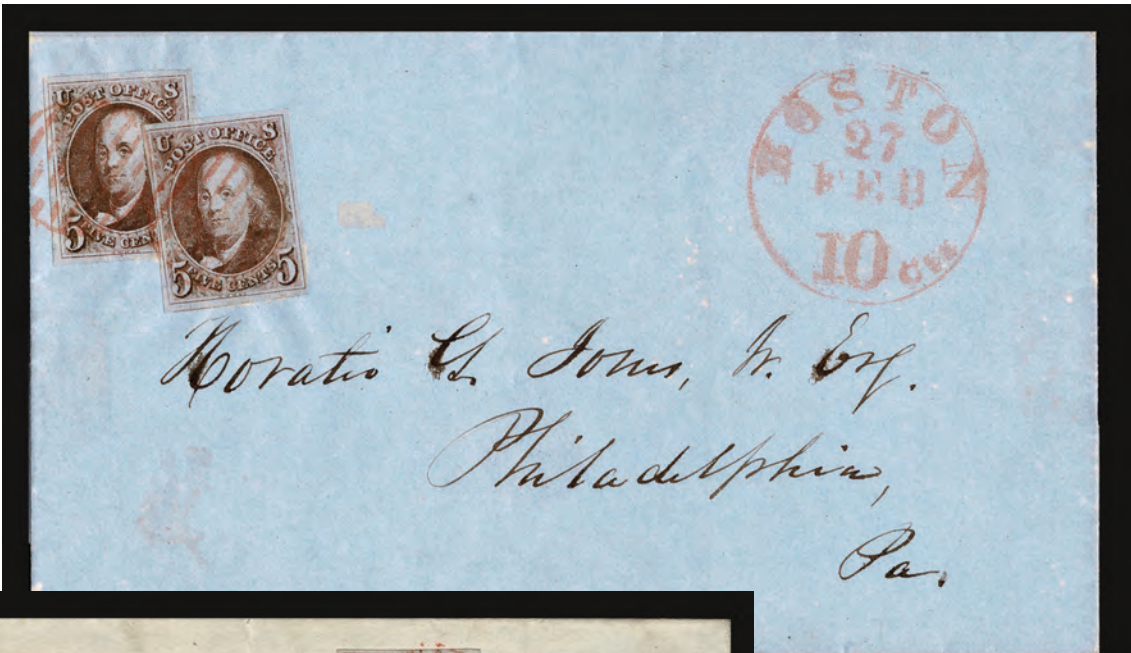 U S
POST OFFICE
5
FIVE CENT
U S
POST OFFICE
5 FIVE CENTS 5
BOSTON
27
FEB
10 Cts
Horatio G. Jones, Jr. Esq.
Philadelphia,
Pa.